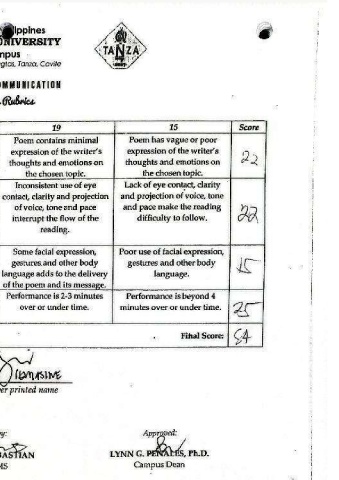 ilippines
UNIVERSITY
mpus
gtas, Tanza, Cavite
TANZA
OMMUNICATION
Rubrics
19 15 Score
Poem contains minimal expression of the writer's thoughts and emotions on the chosen topic.
Poem has vague or poor expression of the writer's thoughts and emotions on the chosen topic.
22
Inconsistent use of eye contact, clarity and projection of voice, tone and pace interrupt the flow of the reading.
Lack of eye contact, clarity and projection of voice, tone and pace make the reading difficulty to follow.
22
Some facial expression, gestures and other body language adds to the delivery of the poem and its message.
Poor use of facial expression, gestures and other body language.
15
Performance is 2-3 minutes over or under time.
Performance is beyond 4 minutes over or under time.
25
Final Score: 84
er printed name
y:
BASTIAN
MS
Approved:
LYNN G. PENALES, Ph.D.
Campus Dean